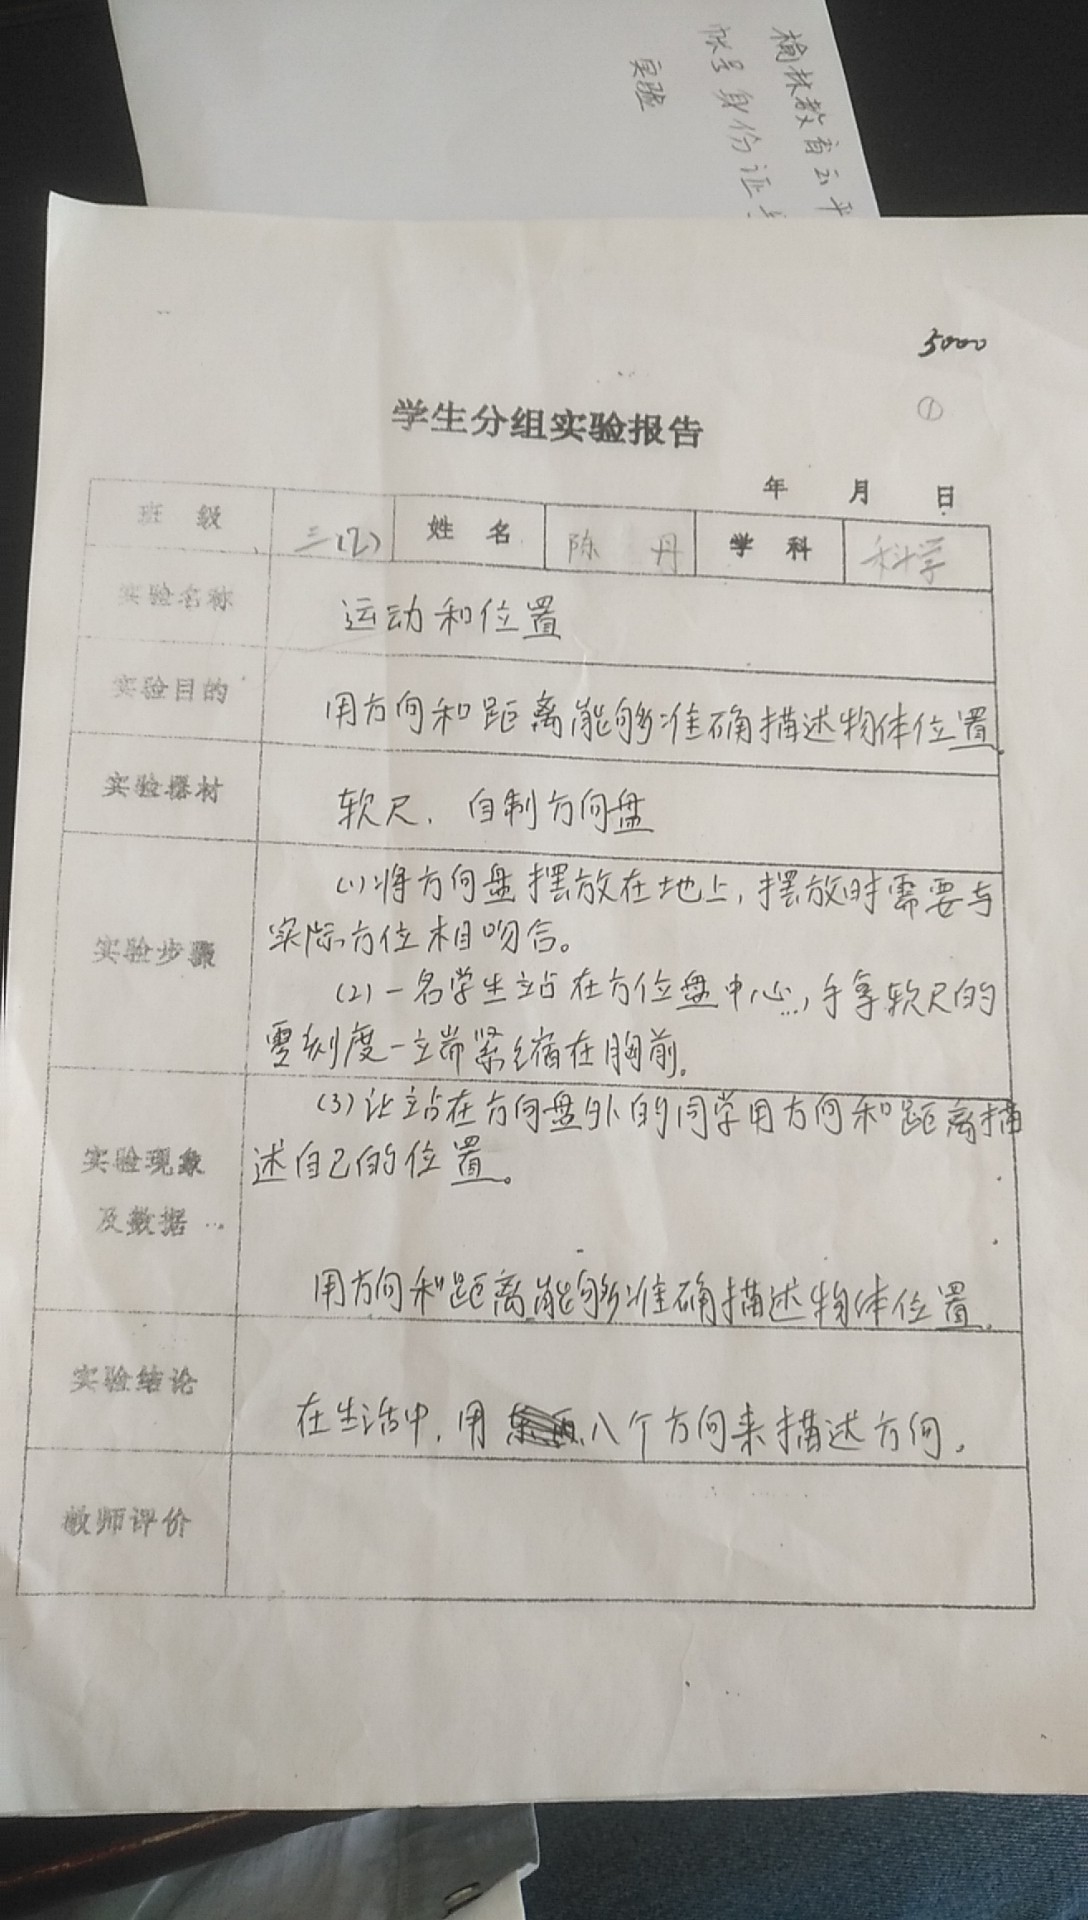 榆林教育云平
帐号身份证号
实验
5000
①
学生分组实验报告
年 月 日
班 级 三(2) 姓 名 陈 丹 学 科 科学
实验名称 运动和位置
实验目的 用方向和距离能够准确描述物体位置.
实验器材 软尺、自制方向盘
实验步骤
(1)将方向盘摆放在地上,摆放时需要与
实际方位相吻合。
(2)一名学生站在方位盘中心,手拿软尺的
零刻度一端紧缩在胸前.
(3)让站在方向盘外的同学用方向和距离描
述自己的位置。
实验现象
及数据
用方向和距离能够准确描述物体位置.
实验结论 在生活中,用八个方向来描述方向.
教师评价